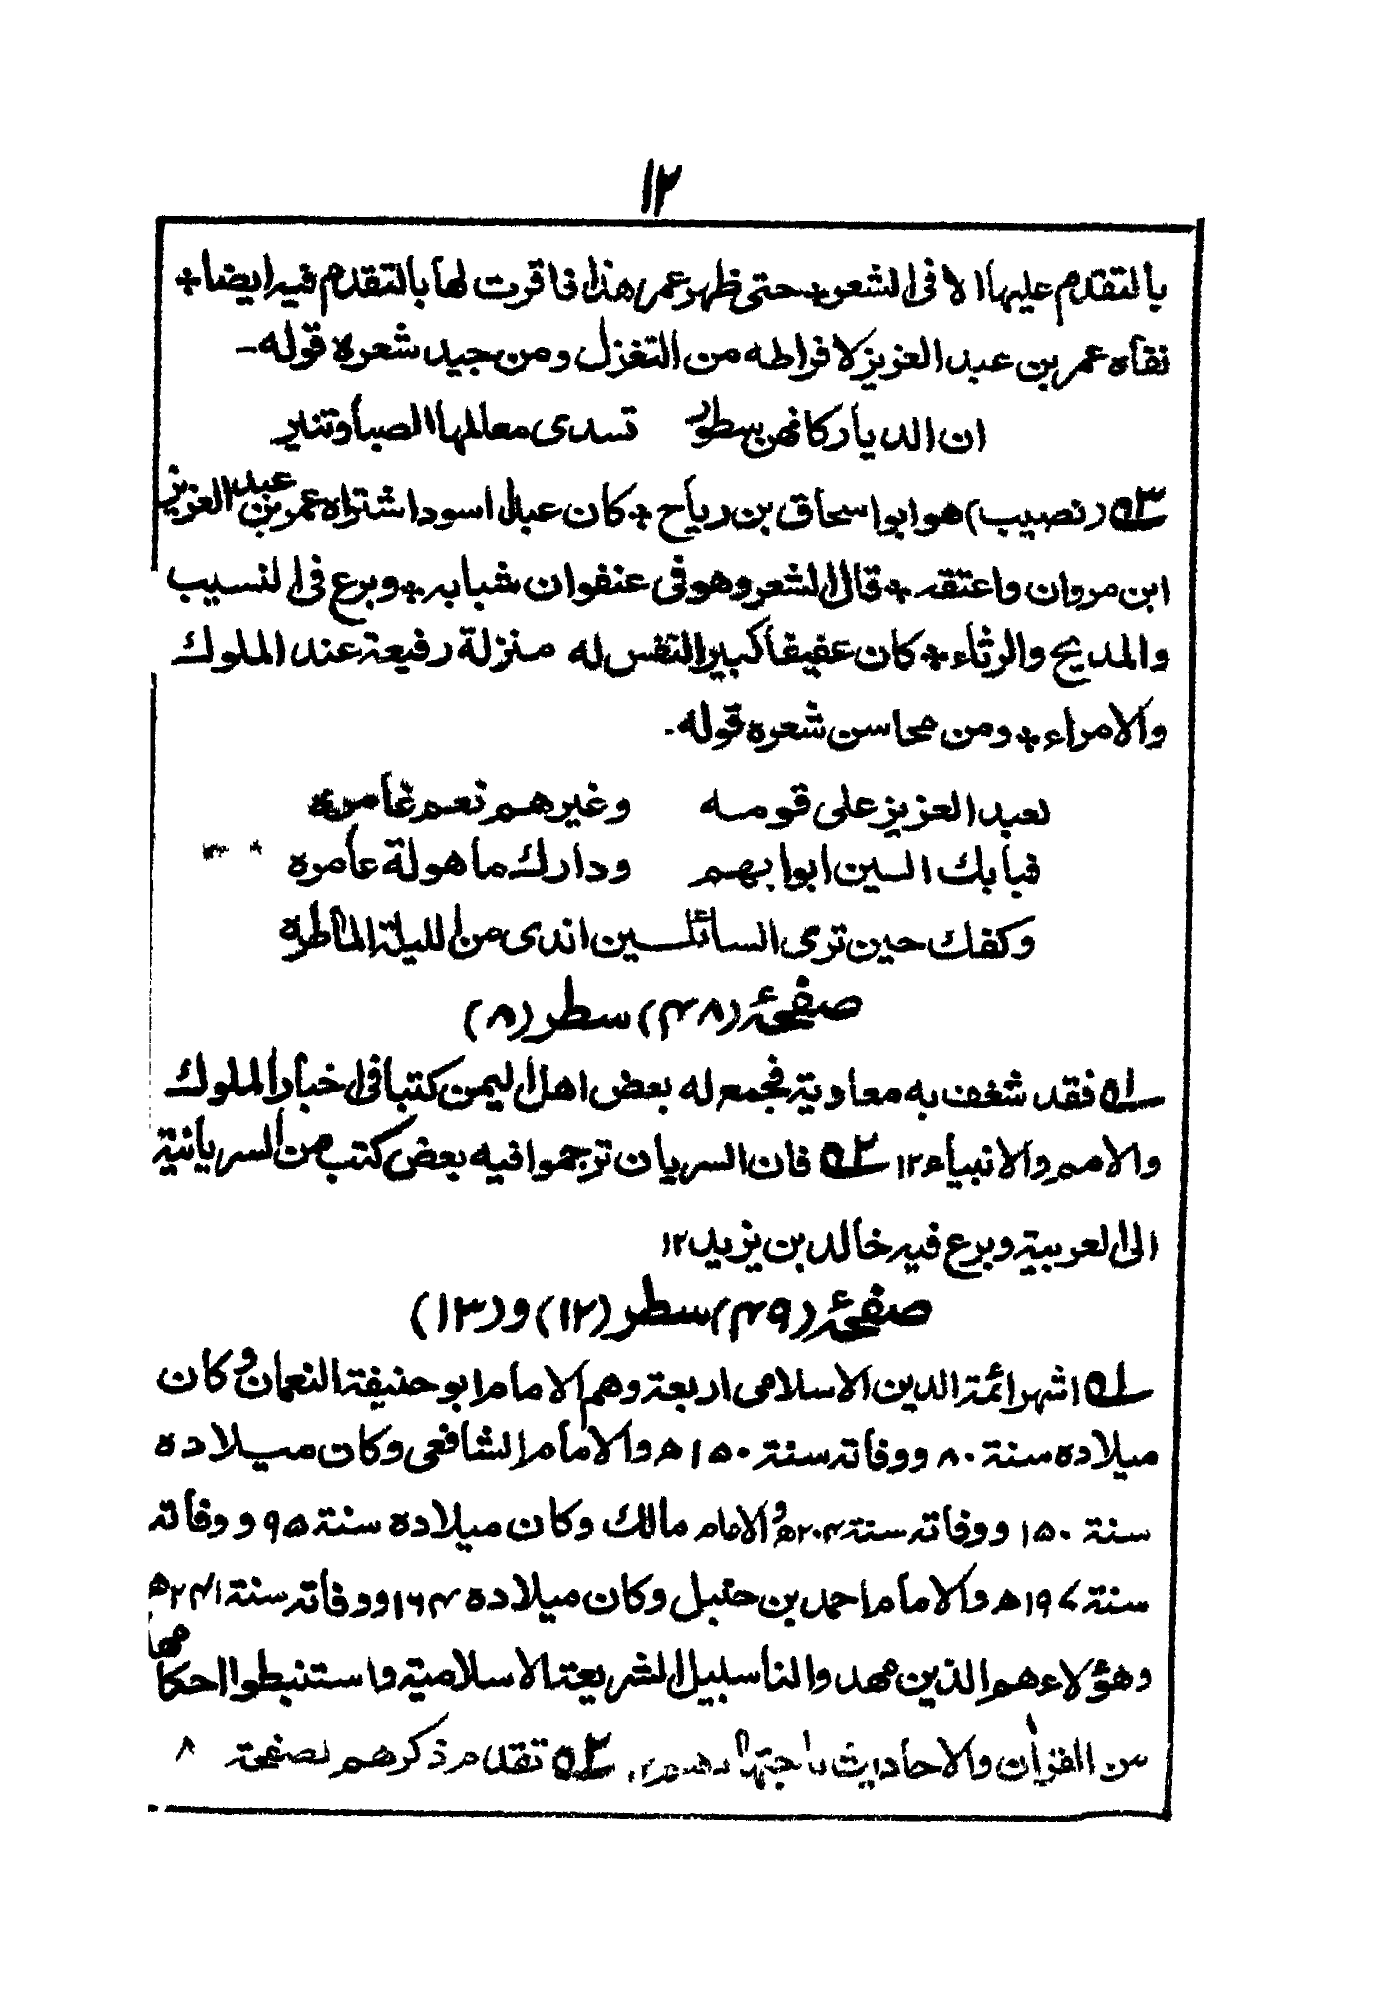 ١٢
بالتقدم عليها الا فى الشعر٭حتى ظهر عمر هذا فاقرت لها بالتقدم فيه ايضا٭
نفاه عمر بن عبد العزيز لافراطه من التغزل ومن جيد شعره قوله-
ان الديار كانهن سطور تسدى معالمها الصبا وتنير
٥٣ (نصيب) هو ابو اسحاق بن رياح٭كان عبدا اسود اشتراه عمر بن عبد العزيز
ابن مروان واعتقه٭قال الشعر وهو فى عنفوان شبابه٭وبرع فى النسيب
والمديح والرثاء٭كان عفيفا كبير النفس له منزلة رفيعة عند الملوك
والامراء٭ومن محاسن شعره قوله-
لعبد العزيز على قومه وغيرهم نعم غامره
فبابك الين ابوابهم ودارك ماهولة عامره
وكفك حين ترى السائلين اندى من الليلة الماطره
صفحۂ (٤٨) سطر (٨)
٥١ فقد شغف به معاوية فجمع له بعض اهل اليمن كتبا فى اخبار الملوك
والامم والانبياء ١٢ ٥٢ فان السريان ترجموا فيه بعض كتب من السريانية
الى العربية وبرع فيه خالد بن يزيد ١٢
صفحۂ (٤٩) سطر (١٢) و (١٣)
٥١ اشهر ائمة الدين الاسلامى اربعة وهم الامام ابو حنيفة النعمان وكان
ميلاده سنة ٨٠ ووفاته سنة ١٥٠ ه والامام الشافعى وكان ميلاده
سنة ١٥٠ ووفاته سنة ٢٠٤ه والامام مالك وكان ميلاده سنة ٩٥ ووفاته
سنة ١٩٧ ه والامام احمد بن حنبل وكان ميلاده ١٦٤ ووفاته سنة ٢٤١ه
وهؤلاء هم الذين مهدوا لنا سبيل الشريعة الاسلامية واستنبطوا احكامها
من القران والاحاديث باجتهادهم ٥٢ تقدم ذكرهم بصفحة ٨